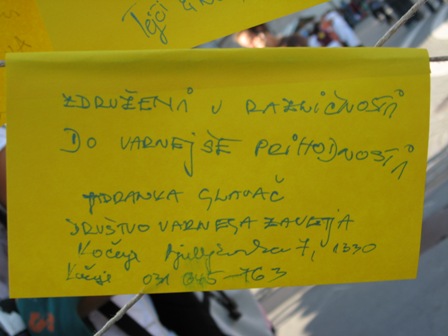 Tejči
ZDRUŽENI V RAZLIČNOSTI
DO VARNEJŠE PRIHODNOSTI
JADRANKA GLAVAČ
DRUŠTVO VARNEGA ZAVETJA
Kočevje Ljubljanska 7, 1330
Kočevje 031 645-763